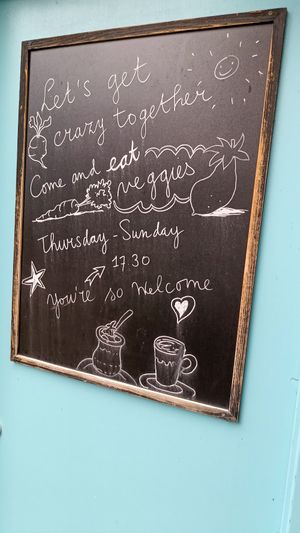 Let's get
crazy together
Come and eat
veggies
Thursday - Sunday
17.30
You're so welcome